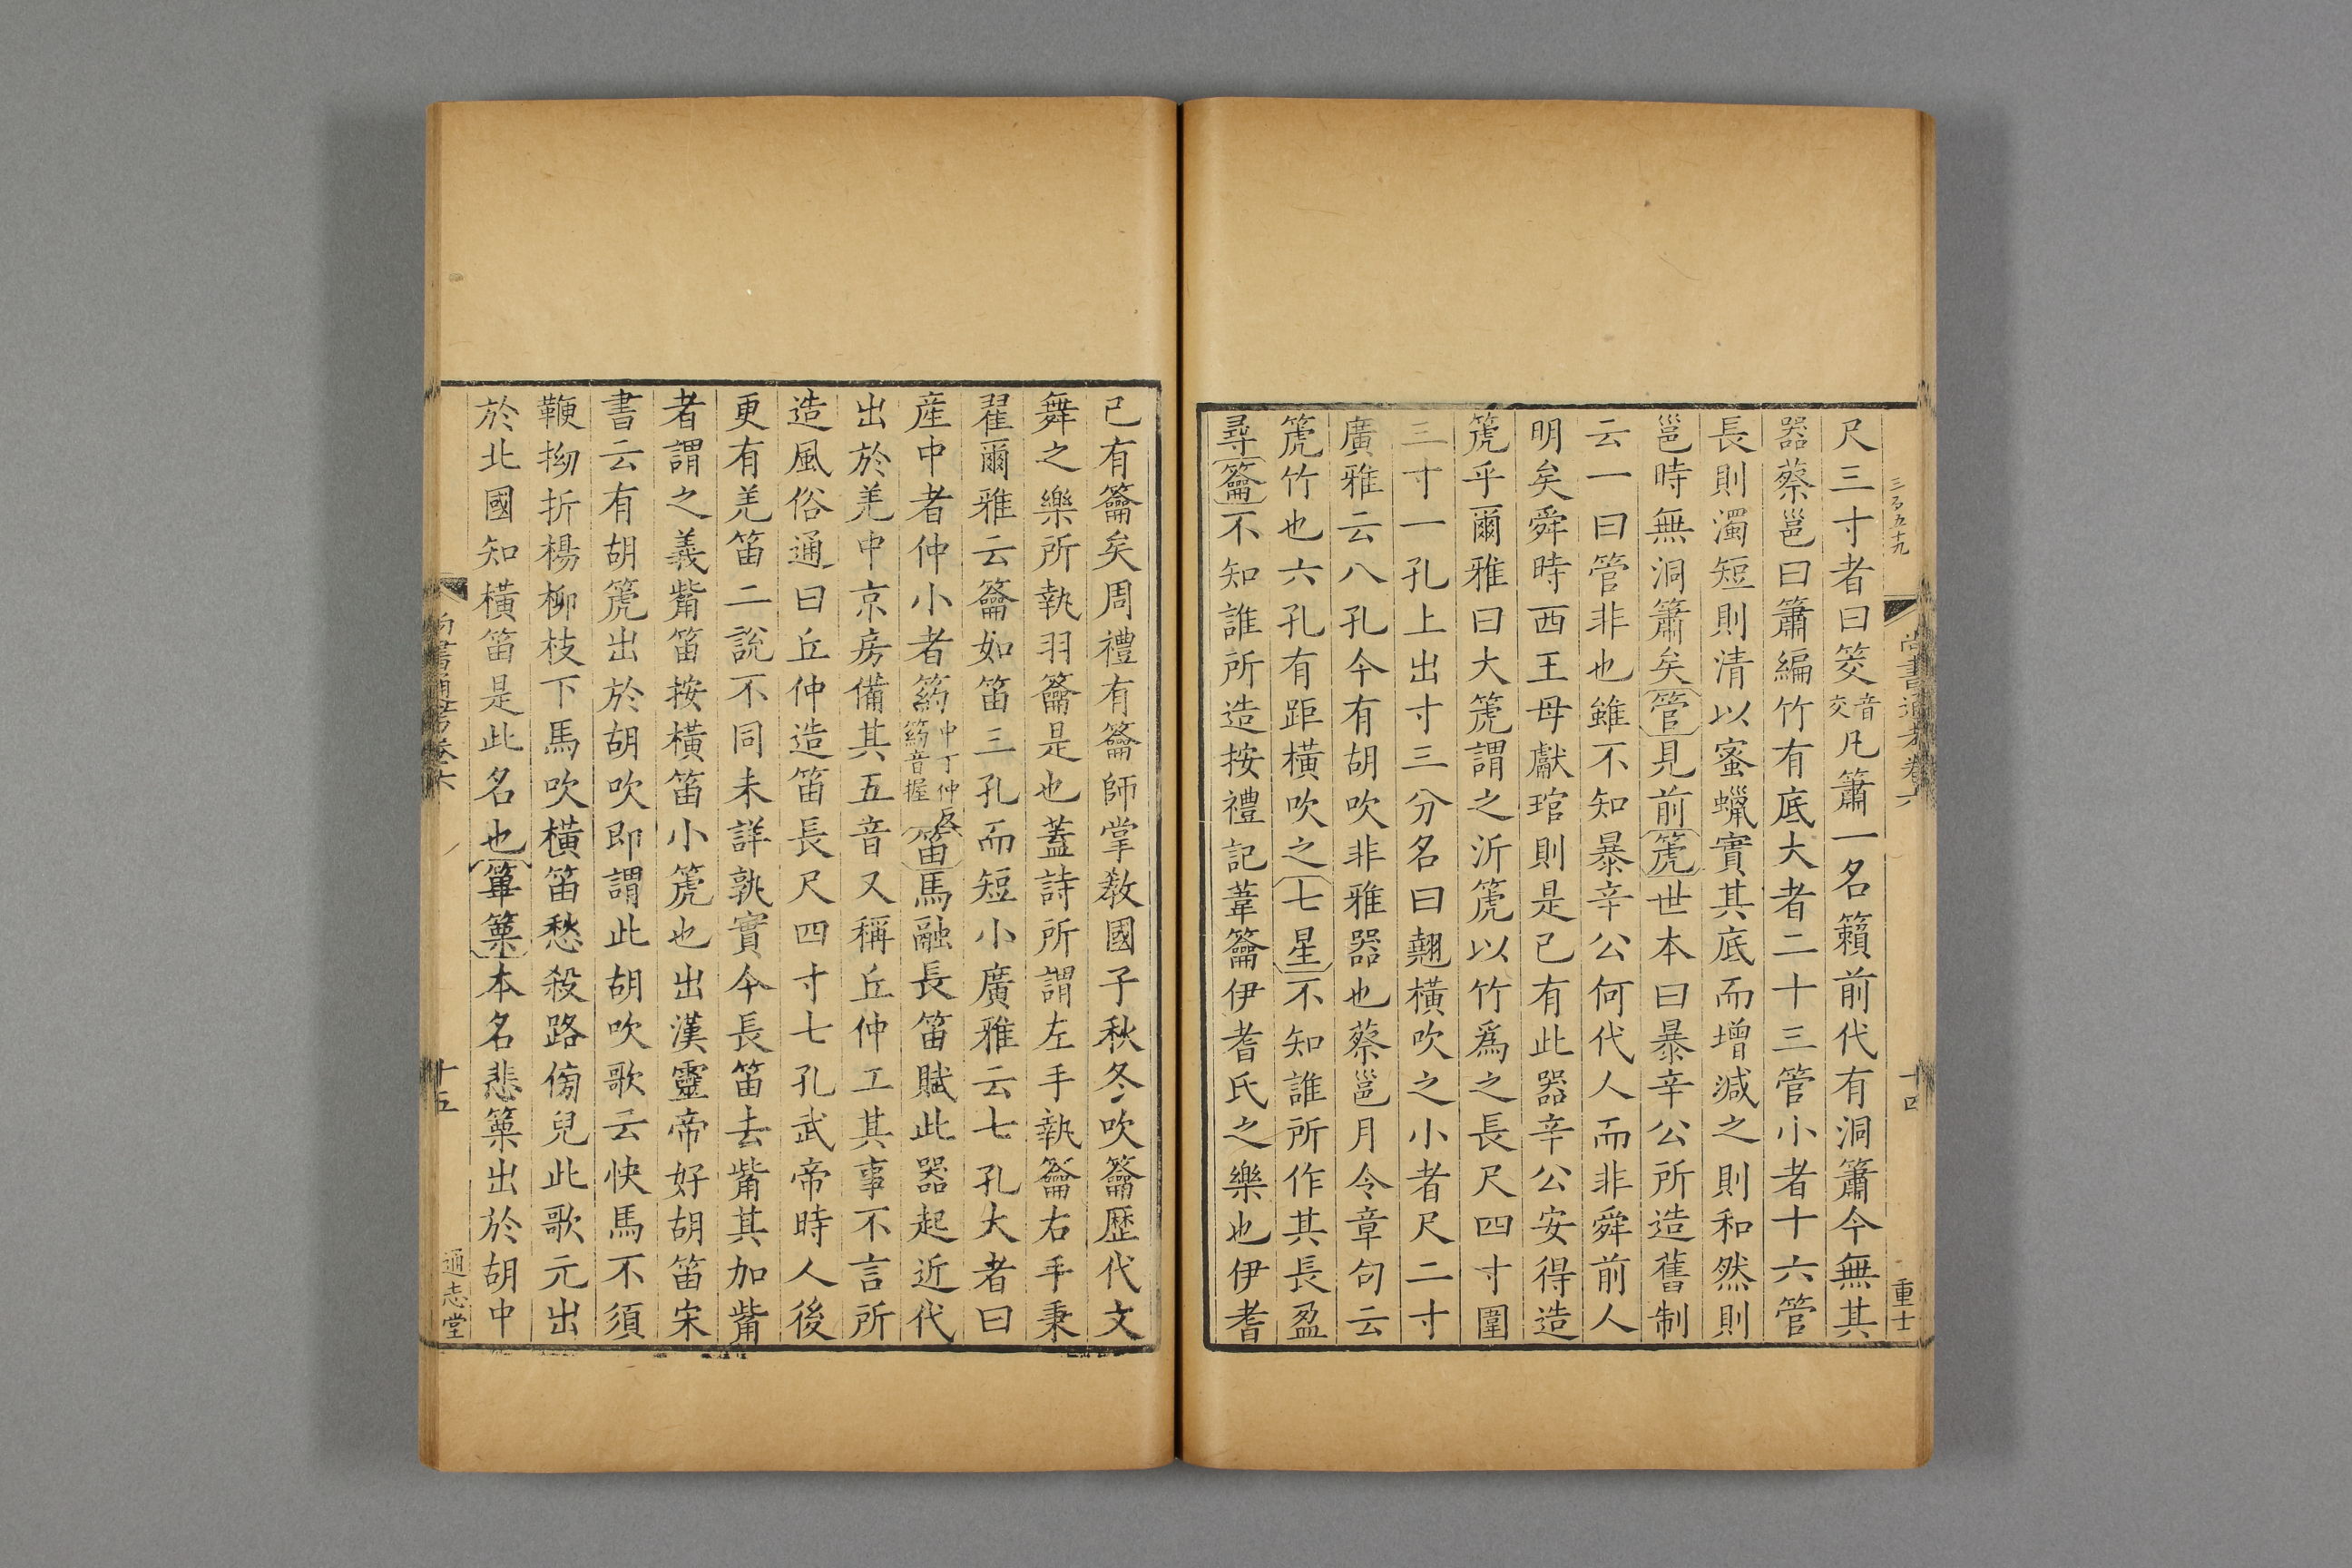 三百五十九 尚書通考卷六 十四 重士
尺三寸者曰筊音交凡簫一名籟前代有洞簫今無其
器蔡邕曰簫編竹有底大者二十三管小者十六管
長則濁短則清以蜜蠟實其底而增減之則和然則
邕時無洞簫矣管見前篪世本曰暴辛公所造舊制
云一曰管非也雖不知暴辛公何代人而非舜前人
明矣舜時西王母獻琯則是已有此器辛公安得造
篪乎爾雅曰大篪謂之沂篪以竹爲之長尺四寸圍
三寸一孔上出寸三分名曰翹橫吹之小者尺二寸
廣雅云八孔今有胡吹非雅器也蔡邕月令章句云
篪竹也六孔有距橫吹之七星不知誰所作其長盈
尋籥不知誰所造按禮記葦籥伊耆氏之樂也伊耆
已有籥矣周禮有籥師掌教國子秋冬吹籥歷代文
舞之樂所執羽籥是也蓋詩所謂左手執籥右手秉
翟爾雅云籥如笛三孔而短小廣雅云七孔大者曰
産中者仲小者箹仲丁仲反箹音握笛馬融長笛賦此器起近代
出於羌中京房備其五音又稱丘仲工其事不言所
造風俗通曰丘仲造笛長尺四寸七孔武帝時人後
更有羌笛二說不同未詳孰實今長笛去觜其加觜
者謂之義觜笛按橫笛小篪也出漢靈帝好胡笛宋
書云有胡篪出於胡吹即謂此胡吹歌云快馬不須
鞭拗折楊柳枝下馬吹橫笛愁殺路傍兒此歌元出
於北國知橫笛是此名也篳篥本名悲篥出於胡中
尚書通考卷六 十五 通志堂